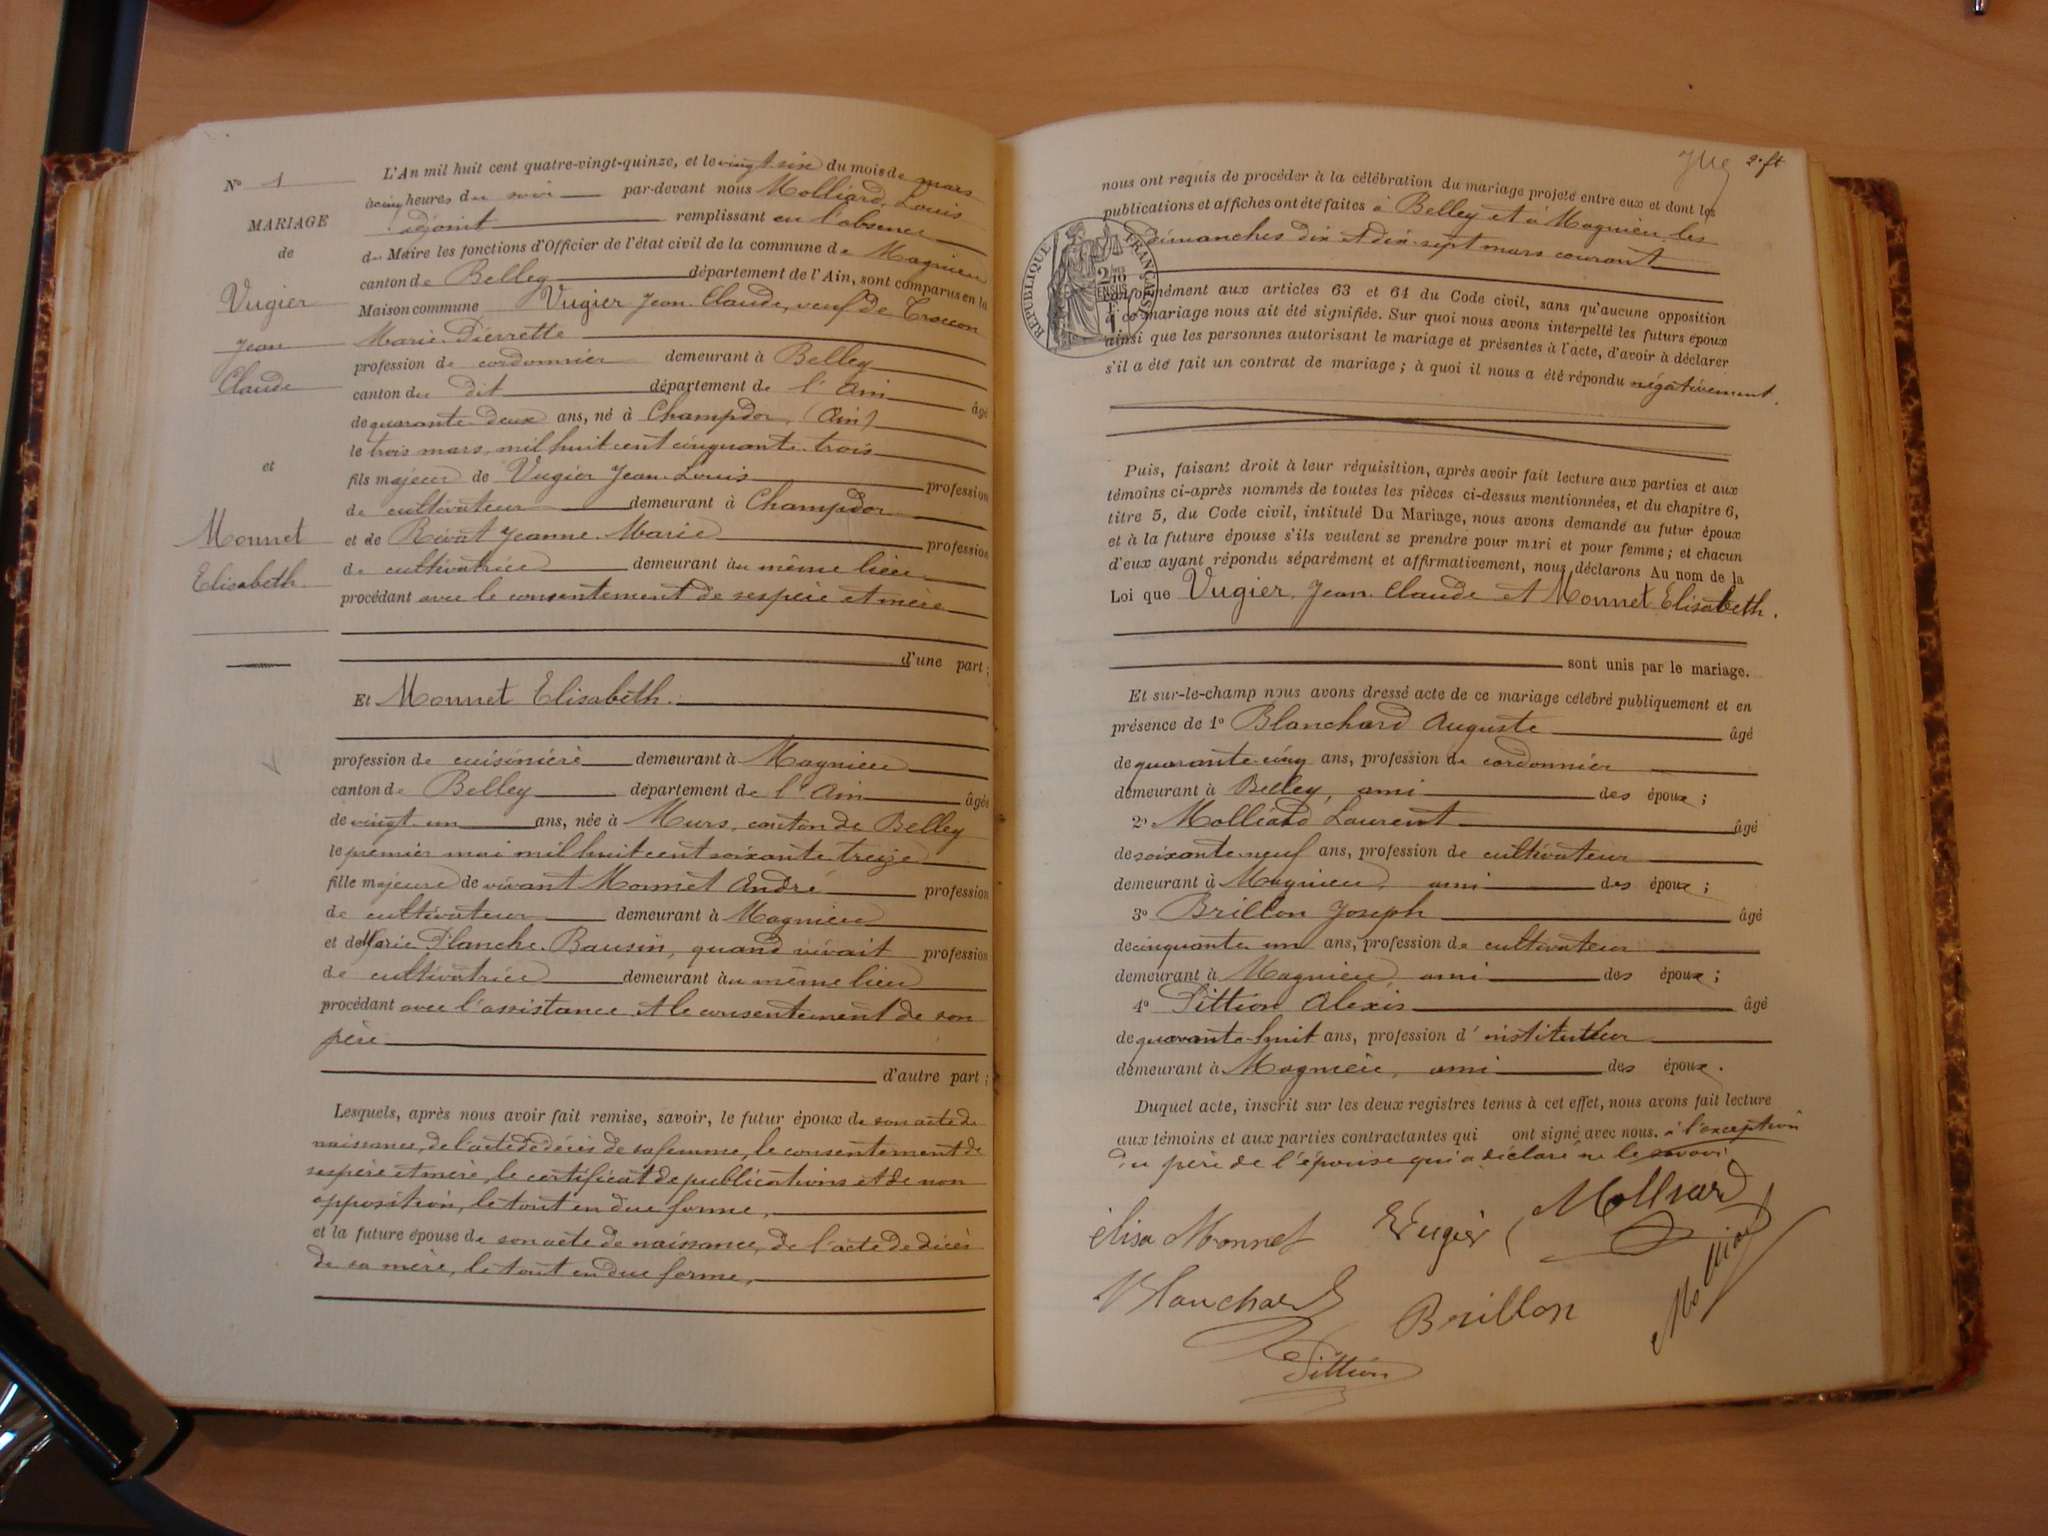 N° 1
MARIAGE
de
Vugier
Jean
Claude
et
Monnet
Elisabeth
L'An mil huit cent quatre-vingt-quinze, et le vingt six du mois de mars
à cinq heures du soir par-devant nous Molliard, Louis
adjoint remplissant en l'absence
du Maire les fonctions d'Officier de l'état civil de la commune de Magnieu
canton de Belley département de l'Ain, sont comparus en la
Maison commune Vugier Jean Claude, veuf de Troccon
Marie Pierrette
profession de cordonnier demeurant à Belley
canton du dit département de l'Ain âgé
de quarante-deux ans, né à Champdor, (Ain)
le trois mars, mil huit cent cinquante-trois
fils majeur de Vugier Jean-Louis profession
de cultivateur demeurant à Champdor
et de Rivat Jeanne-Marie profession
de cultivatrice demeurant au même lieu
procédant avec le consentement de ses père et mère
d'une part;
Et Monnet Elisabeth.
profession de cuisinière demeurant à Magnieu
canton de Belley département de l'Ain âgée
de vingt-un ans, née à Murs, canton de Belley
le premier mai mil huit cent soixante-treize
fille majeure de vivant Monnet André profession
de cultivateur demeurant à Magnieu
et de Marie Planche-Bausin, quand vivait profession
de cultivatrice demeurant au même lieu
procédant avec l'assistance et le consentement de son
père
d'autre part;
Lesquels, après nous avoir fait remise, savoir, le futur époux de son acte de
naissance, de l'acte de décès de sa femme, le consentement de
ses père et mère, le certificat de publications et de non
opposition, le tout en due forme,
et la future épouse de son acte de naissance, de l'acte de décès
de sa mère, le tout en due forme,
2e ft
nous ont requis de procéder à la célébration du mariage projeté entre eux et dont les
publications et affiches ont été faites à Belley et à Magnieu, les
dimanches dix et dix-sept mars courant
RÉPUBLIQUE FRANÇAISE
2/10 EN SUS
conformément aux articles 63 et 64 du Code civil, sans qu'aucune opposition
à ce mariage nous ait été signifiée. Sur quoi nous avons interpellé les futurs époux
ainsi que les personnes autorisant le mariage et présentes à l'acte, d'avoir à déclarer
s'il a été fait un contrat de mariage; à quoi il nous a été répondu négativement.
Puis, faisant droit à leur réquisition, après avoir fait lecture aux parties et aux
témoins ci-après nommés de toutes les pièces ci-dessus mentionnées, et du chapitre 6,
titre 5, du Code civil, intitulé Du Mariage, nous avons demandé au futur époux
et à la future épouse s'ils veulent se prendre pour mari et pour femme; et chacun
d'eux ayant répondu séparément et affirmativement, nous déclarons Au nom de la
Loi que Vugier, Jean-Claude et Monnet Elisabeth.
sont unis par le mariage.
Et sur-le-champ nous avons dressé acte de ce mariage célébré publiquement et en
présence de 1° Blanchard Auguste âgé
de quarante-cinq ans, profession de cordonnier
demeurant à Belley, ami des époux;
2° Molliard Laurent âgé
de soixante-neuf ans, profession de cultivateur
demeurant à Magnieu, ami des époux;
3° Brillon Joseph âgé
de cinquante-un ans, profession de cultivateur
demeurant à Magnieu ami des époux;
4° Pittion Alexis âgé
de quarante-huit ans, profession d'instituteur
demeurant à Magnieu, ami des époux.
Duquel acte, inscrit sur les deux registres tenus à cet effet, nous avons fait lecture
aux témoins et aux parties contractantes qui ont signé avec nous. à l'exception
du père de l'épouse qui a déclaré ne le savoir
élisa Monnet Vugier Molliard
Molliard
Blanchard Brillon
Pittion